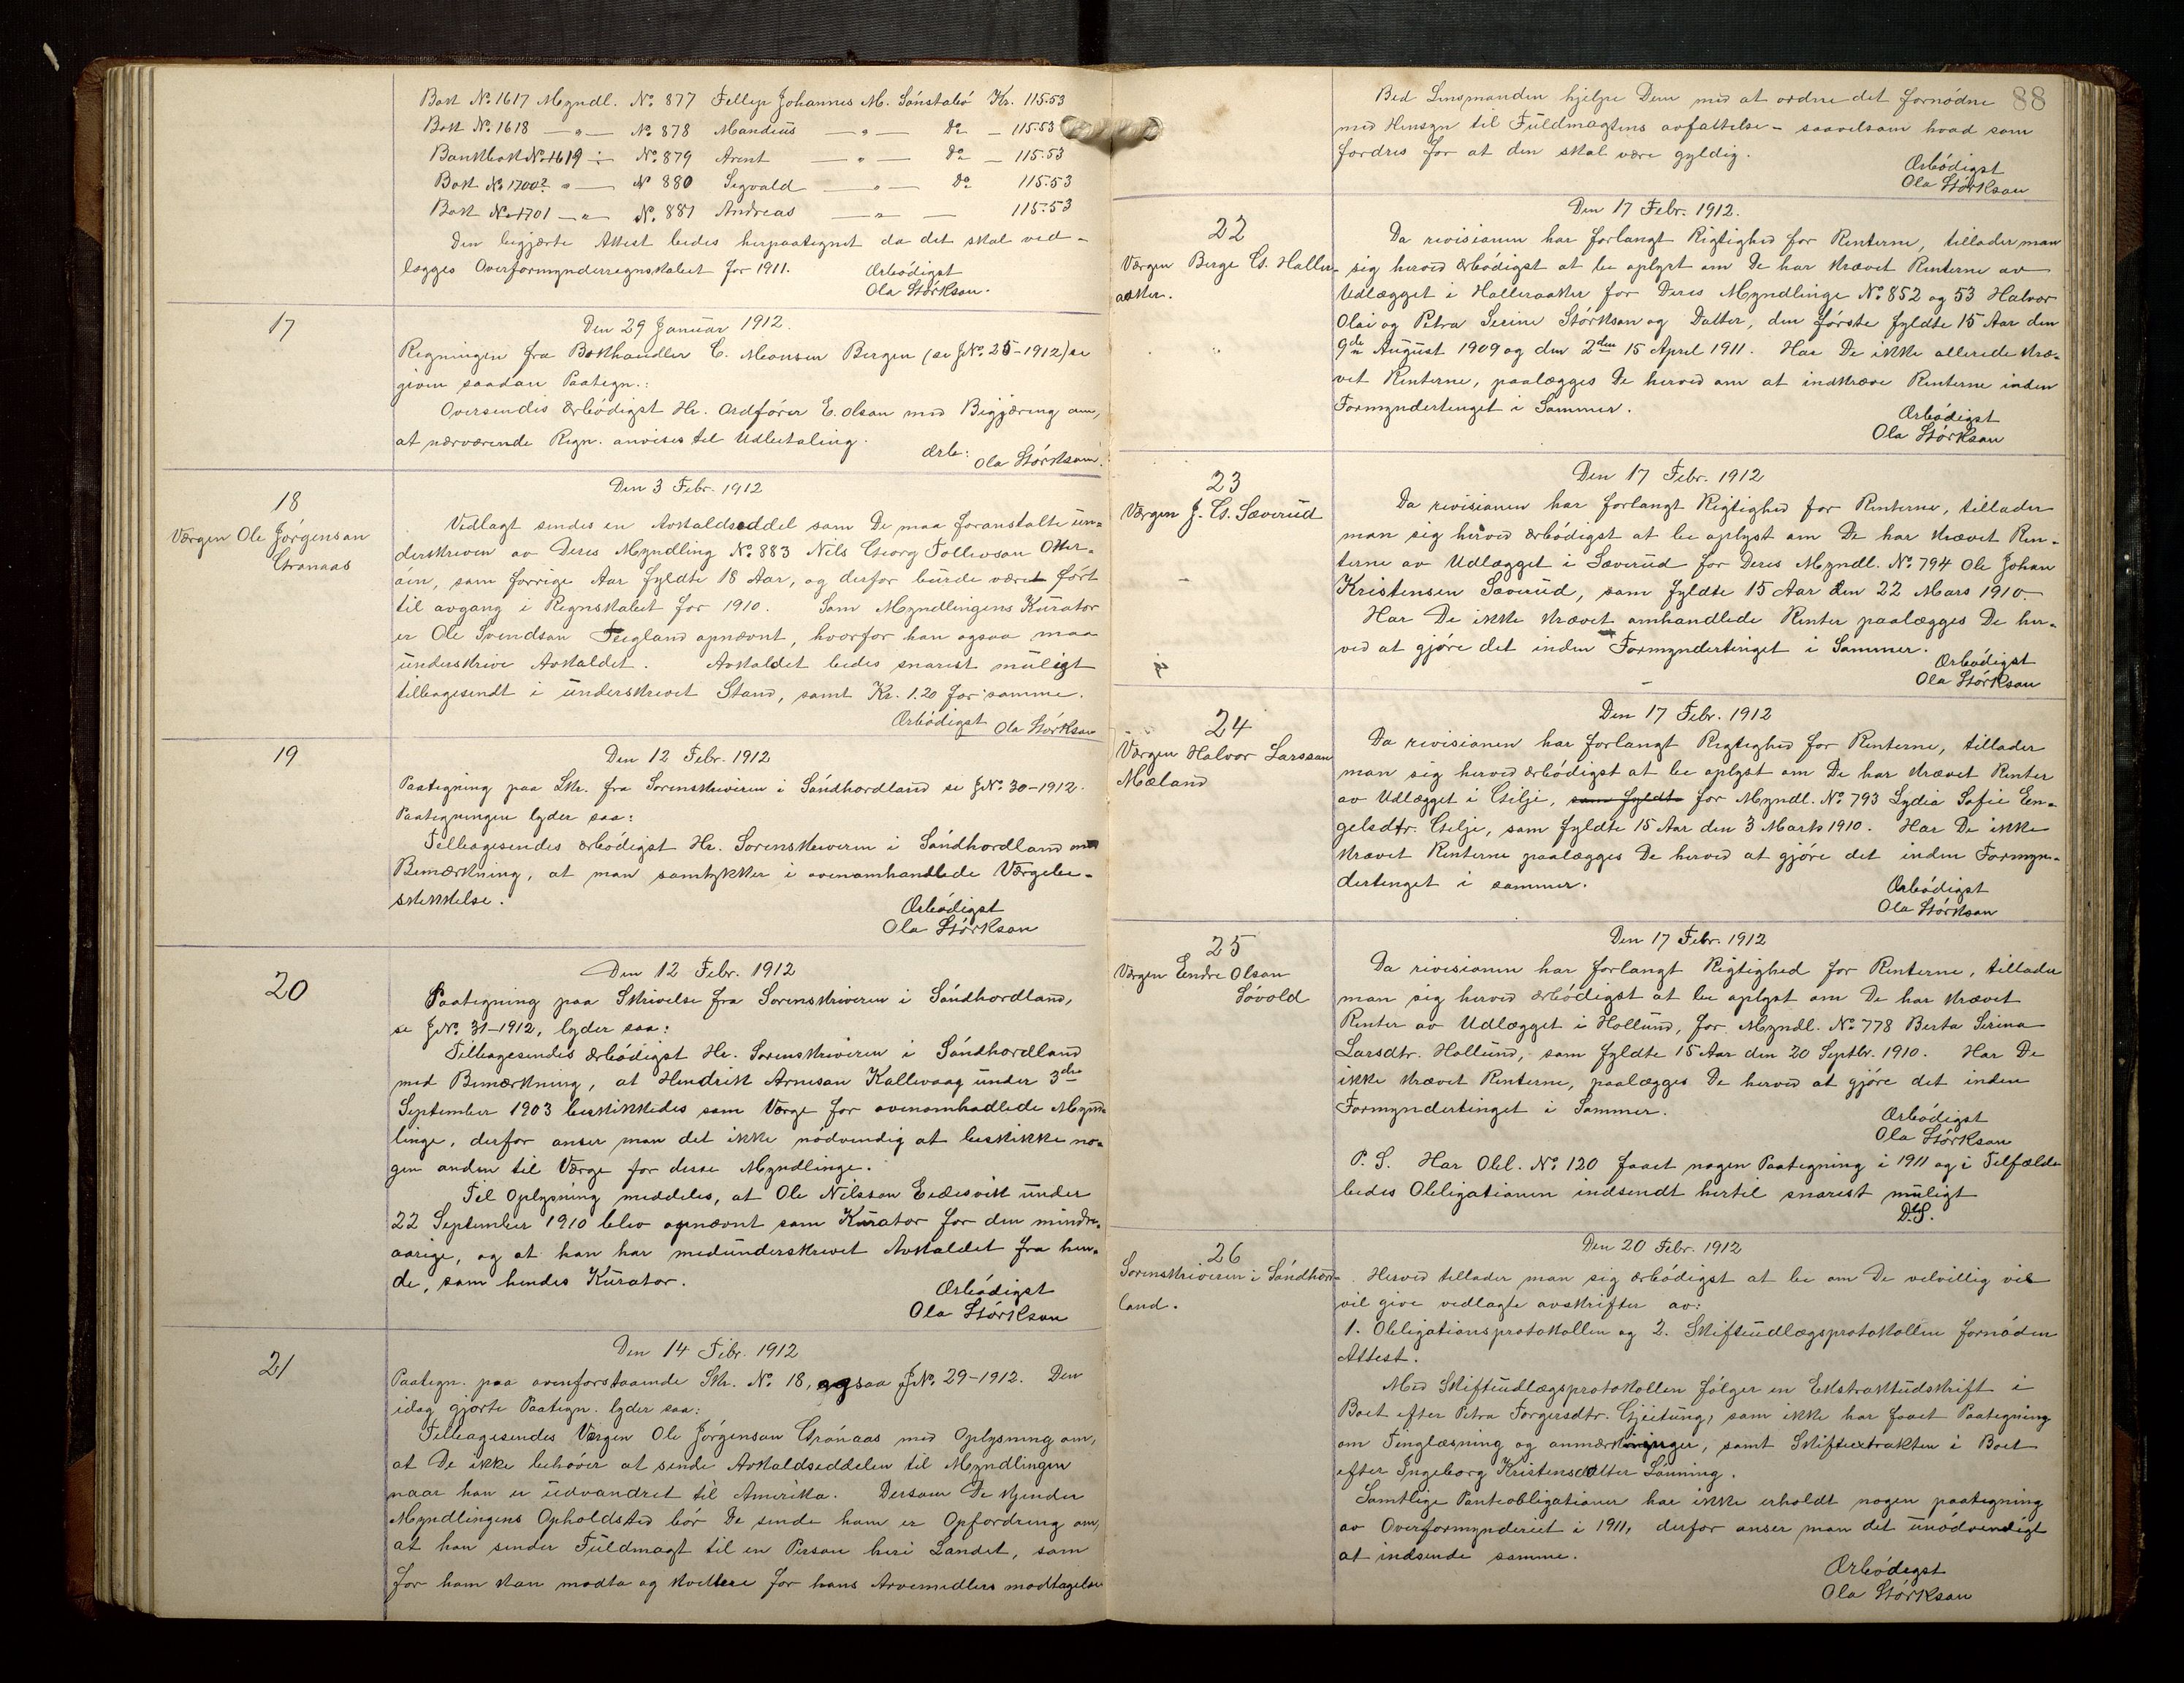 Bok No. 1617 Myndl. No. 877 Fellip Johannes M. Sönstabö Kr. 115.53
Bok No. 1618 — " — No. 878 Mandius — " — Do — 115.53
Bankbok No. 1619 — No. 879 Arent — " — Do — 115.53
Bok No. 1700? " — No 880 Sigvald — " — Do 115.53
Bok No. 1701 — " — No. 881 Andreas — " — 115.53
Den begjærte Attest bedes herpaategnet da det skal ved-
lægges Overformynderregnskabet for 1911.
Ærbödigst
Ola Störkson.
17
Den 29 Januar 1912.
Regningen fra Bokhandler C. Monsen Bergen (se JNo. 25-1912) er
given saadan Paategn.:
Oversendes ærbödigst Hr. Ordförer E. Olson med Begjæring om,
at nærværende Regn. anvises til Udbetaling.
Ærb:
Ola Störkson.
18
Værgen Ole Jörgenson
Grönaas
Den 3 Febr. 1912
Vedlagt sendes en Avkaldseddel som De maa foranstalte un-
derskreven av Deres Myndling No. 883 Nils Georg Tollevson Otter-
öin, som forrige Aar fyldte 18 Aar, og derfor burde været fört
til avgang i Regnskabet for 1910. Som Myndlingens Kurator
er Ole Svendson Fugland opnævnt, hvorfor han ogsaa maa
underskrive Avkaldet. Avkaldet bedes snarest muligt
tilbagesendt i underskrevet Stand, samt Kr. 1.20 for samme.
Ærbödigst Ola Störkson
19
Den 12 Febr. 1912
Paategning paa Skr. fra Sorenskriveren i Söndhordland se JNo. 30-1912.
Paategningen lyder saa:
Tilbagesendes ærbödigst Hr. Sorenskriveren i Söndhordland med
Bemærkning, at man samtykker i ovenomhandlede Værgebe-
skikkelse.
Ærbödigst
Ola Störkson
20
Den 12 Febr. 1912
Paategning paa Skrivelse fra Sorenskriveren i Söndhordland,
se JNo. 31-1912, lyder saa:
Tilbagesendes ærbödigst Hr. Sorenskriveren i Söndhordland
med Bemærkning, at Hendrik Arneson Kallevaag under 3die
September 1903 beskikkedes som Værge for ovenomhadlede Mynd-
linge, derfor anser man det ikke nödvendig at beskikke no-
gen anden til Værge for disse Myndlinge.
Til Oplysning meddeles, at Ole Nilsson Eidesvik under
22 September 1910 blev opnævnt som Kurator for den mindre-
aarige, og at han har medunderskrevet Avkaldet fra hen-
de, som hendes Kurator.
Ærbödigst
Ola Störkson
21
Den 14 Febr. 1912
Paategn. paa ovenforstaaende Skr. No. 18, ogsaa JNo. 29-1912. Den
idag gjorte Paategn. lyder saa:
Tilbagesendes Værgen Ole Jörgenson Grönaas med Oplysning om,
at De ikke behöver at sende Avkaldseddelen til Myndlingen
naar han er udvandret til Amerika. Dersom De kjender
Myndlingens Opholdsted bör De sende ham er Opfordring om,
at han sender Fuldmagt til en Person heri Landet, som
for ham kan modta og kvittere for hans Arvemidlers modtagelse
88
Bed Lensmanden hjelpe Dem med at ordne det fornödne
med Hensyn til Fuldmagtens avfattelse – saavelsom hvad som
fordres for at den skal være gyldig.
Ærbödigst
Ola Störkson
22
Værgen Berge G. Haller-
aaker.
Den 17 Febr. 1912.
Da revisionen har forlangt Rigtighed for Renterne, tillader man
sig herved ærbödigst at be oplyst om De har krævet Renterne av
Udlægget i Halleraaker for Deres Myndlinge No. 852 og 53 Halvor
Olai og Petra Serine Störkson og Datter, den förste fyldte 15 Aar den
9de August 1909 og den 2den 15 April 1911. Har De ikke allerede kræ-
vet Renterne, paalægges De herved om at indkræve Renterne inden
Formyndertinget i Sommer.
Ærbödigst
Ola Störkson
23
Værgen J. G. Sæverud
Den 17 Febr. 1912
Da revisionen har forlangt Rigtighed for Renterne, tillader
man sig herved ærbödigst at be oplyst om De har krævet Ren-
terne av Udlægget i Sæverud for Deres Myndl. No. 794 Ole Johan
Kristensen Sæverud, som fyldte 15 Aar den 22 Mars 1910.
Har De ikke krævet omhandlede Renter paalægges De her-
ved at gjöre det inden Formyndertinget i Sommer.
Ærbödigst
Ola Störkson
24
Værgen Halvor Larsson
Mæland
Den 17 Febr. 1912
Da revisionen har forlangt Rigtighed for Renterne, tillader
man sig herved ærbödigst at be oplyst om De har krævet Renter
av Udlægget i Gilje, som fyldte for Myndl. No. 793 Lydia Sofie En-
gelsdtr. Gilje, som fyldte 15 Aar den 3 Marts 1910. Har De ikke
krævet Renterne paalægges De herved at gjöre det inden Formyn-
dertinget i sommer.
Ærbödigst
Ola Störkson
25
Værgen Endre Olson
Lövold
Den 17 Febr. 1912
Da revisionen har forlangt Rigtighed for Renterne, tillader
man sig herved ærbödigst at be oplyst om De har krævet
Renter av Udlægget i Hollund, for Myndl. No. 778 Berta Serina
Larsdtr. Hollund, som fyldte 15 Aar den 20 Septbr. 1910. Har De
ikke krævet Renterne, paalægges De herved at gjöre det inden
Formyndertinget i Sommer.
Ærbödigst
Ola Störkson
P. S. Har Obl. No. 120 faaet nogen Paategning i 1911 og i Tilfælde
bedes Obligationen indsendt hertil snarest muligt
D.S.
26
Sorenskriveren i Söndhord-
land.
Den 20 Febr. 1912
Herved tillader man sig ærbödigst at be om De velvillig vil
vil give vedlagte avskrifter av:
1. Obligationsprotokollen og 2. Skifteudlægsprotokollen fornöden
Attest.
Med Skifteudlægsprotokollen fölger en Ekstraktudskrift i
Boet efter Petra Torgersdtr. Gjeitung, som ikke har faaet Paategning
om Tinglæsning og anmærkninger, samt Skifteextrakten i Boet
efter Ingeborg Kristensdatter Lönning.
Samtlige Panteobligationer har ikke erholdt nogen paategning
av Overformynderiet i 1911, derfor anser man det unödvendigt
at indsende samme.
Ærbödigst
Ola Störkson